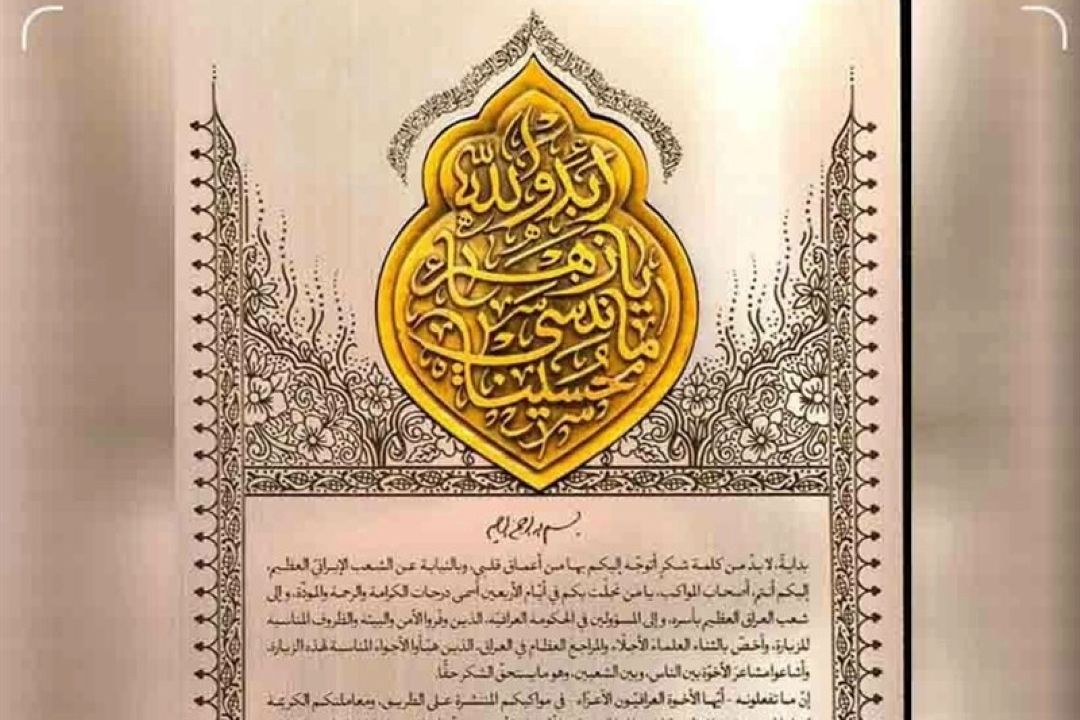 أبد والله
يا زهراء
ما ننسى
حسيناه
بسم الله الرحمن الرحيم
بدايةً، لا بدّ من كلمة شكرٍ أتوجّه إليكم بها من أعماق قلبي، وبالنيابة عن الشعب الإيرانيّ العظيم،
إليكم أنتم، أصحاب المواكب، يا من تجلّت بكم في أيّام الأربعين أسمى درجات الكرامة والرحمة والمودّة، و إلى
شعب العراق العظيم بأسره، و إلى المسؤولين في الحكومة العراقيّة، الذين وفّروا الأمن والبيئة والظروف المناسبة
للزيارة، وأخصّ بالثناء العلماءَ الأجلّاء والمراجع العظام في العراق، الذين هيّأوا الأجواءَ المناسبة لهذه الزيارة،
وأشاعوا مشاعرَ الأخوّة بين الناس، وبين الشعبين، وهو ما يستحقّ الشكر حقًّا.
إنّ ما تفعلونه - أيّها الأخوة العراقيّون الأعزّاء - في مواكبكم المنتشرة على الطريق، ومعاملتكم الكريمة